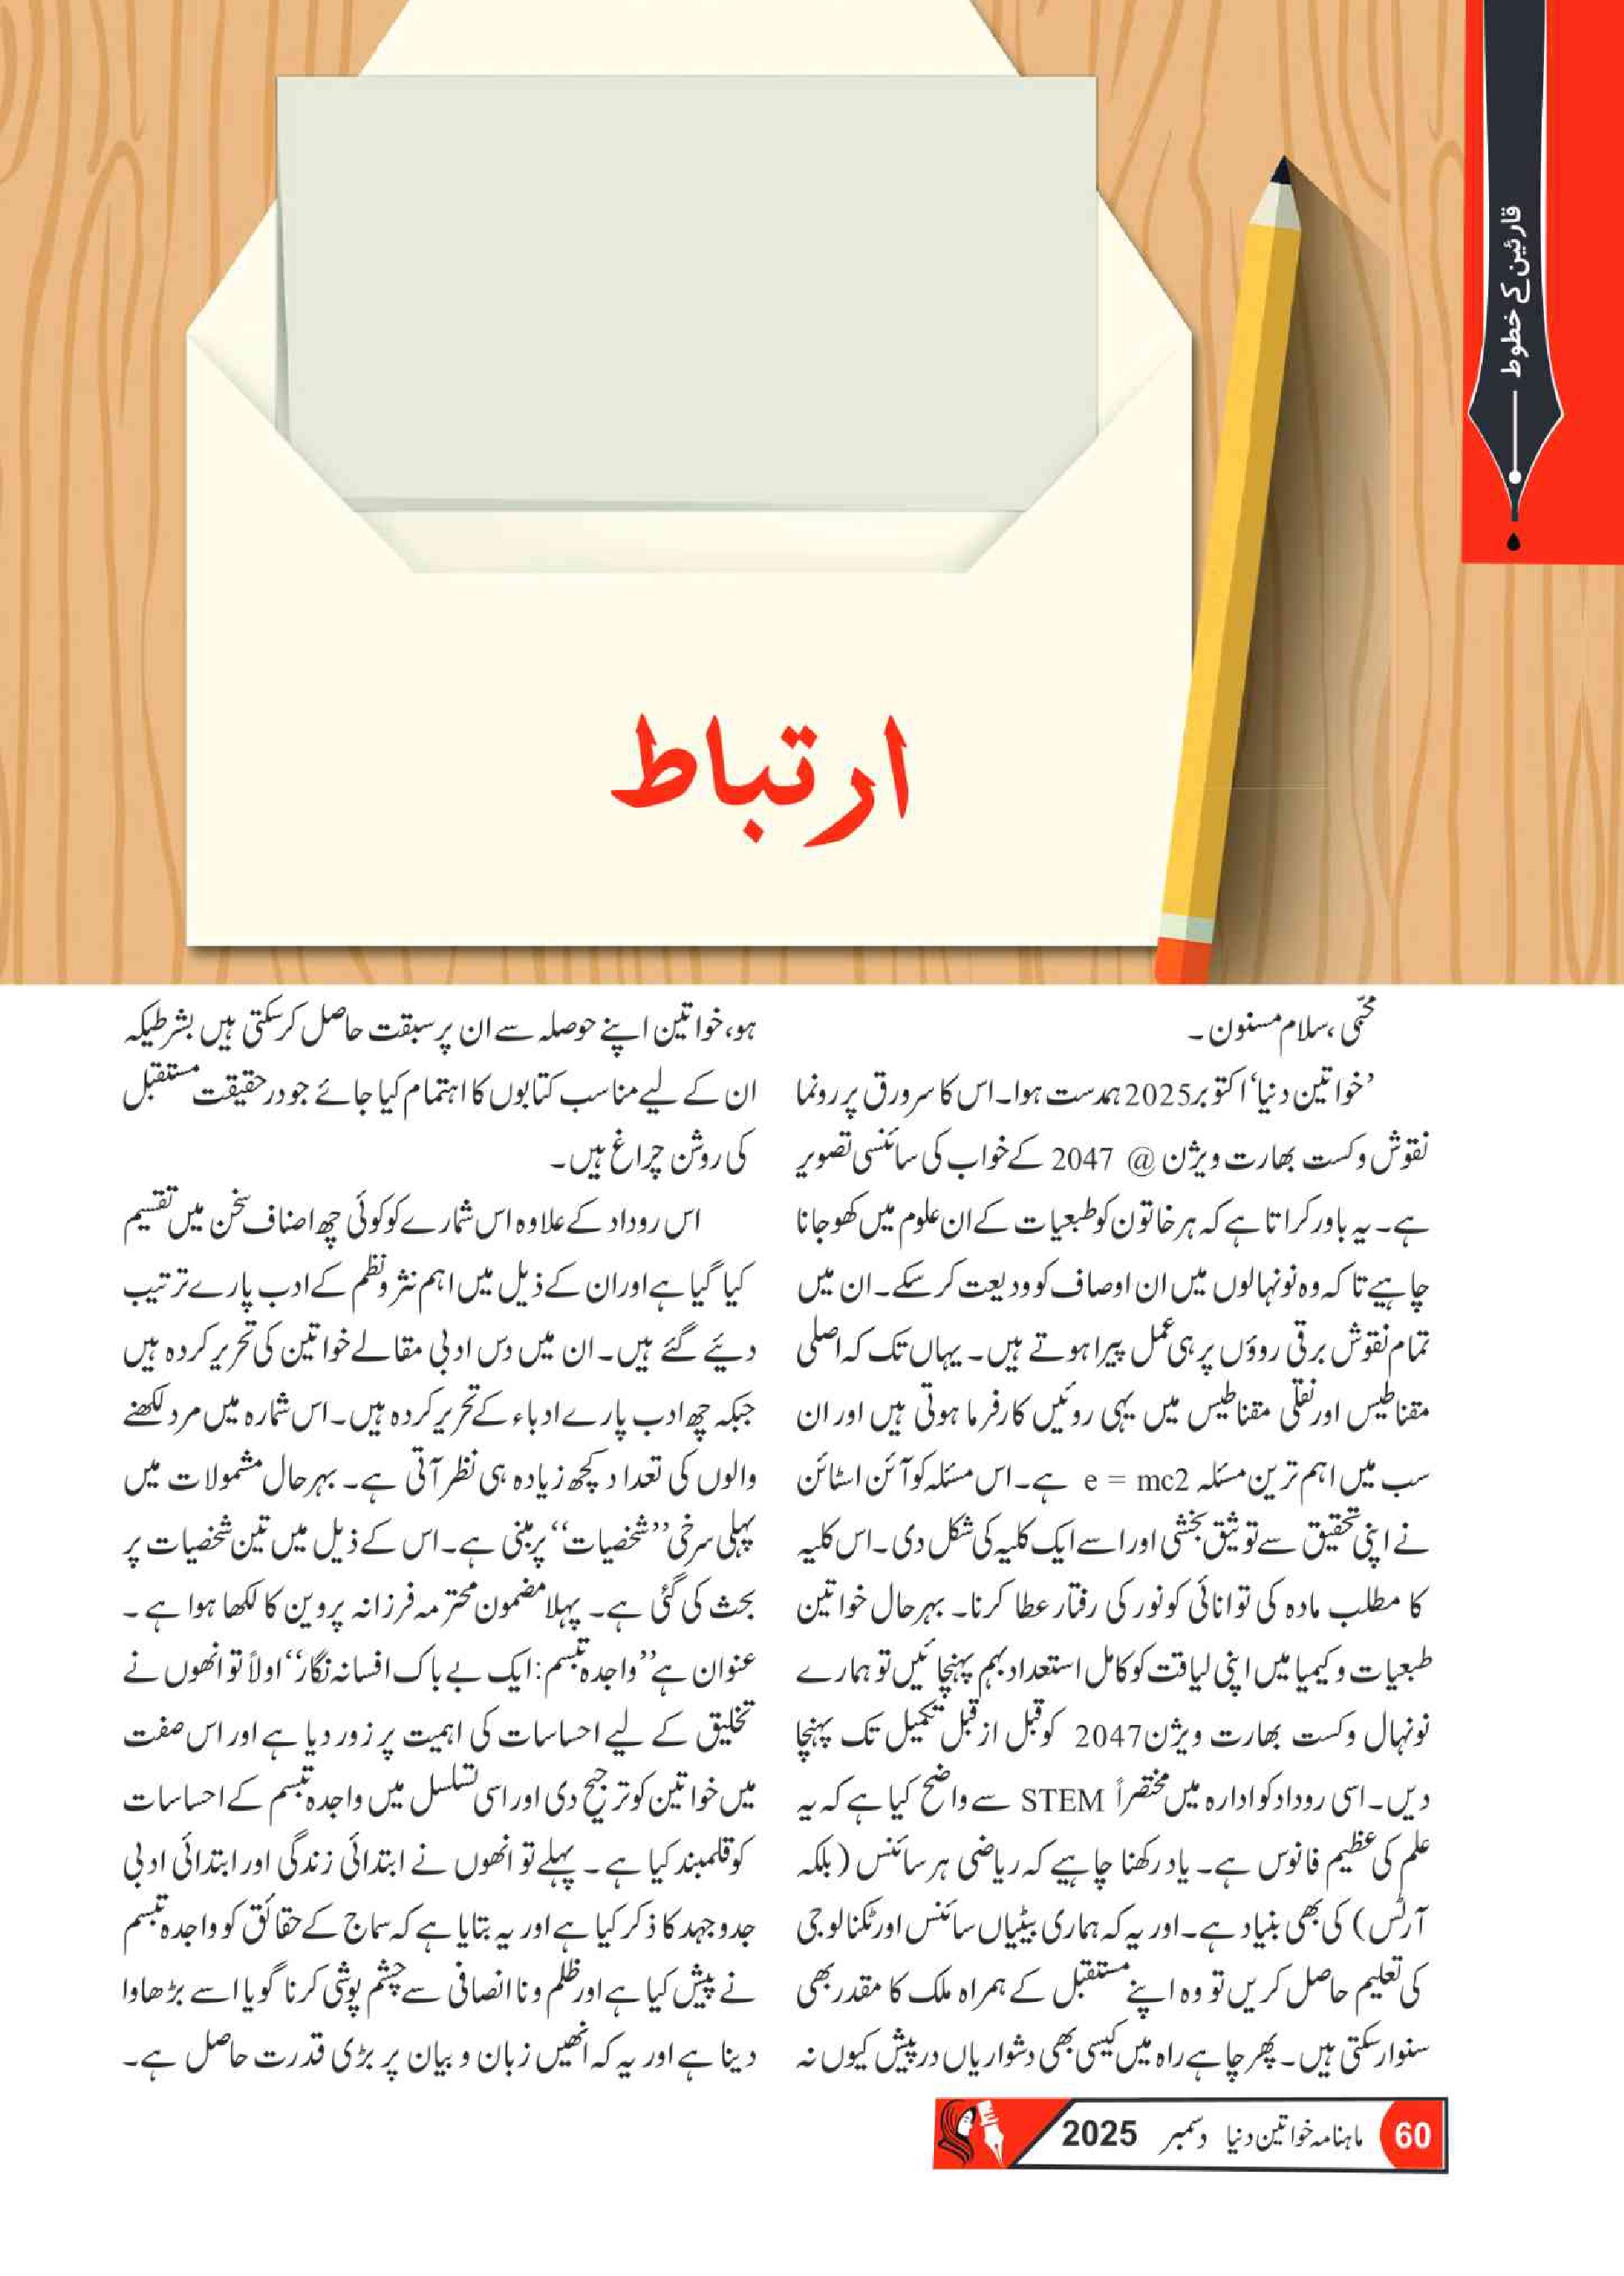 قارئین کے خطوط
ارتباط
محبّی، سلام مسنون۔
’خواتین دنیا‘ اکتوبر 2025 ہمدست ہوا۔ اس کا سرورق پر رونما
نقوش وکست بھارت ویژن @ 2047 کے خواب کی سائنسی تصویر
ہے۔ یہ باور کراتا ہے کہ ہر خاتون کو طبعیات کے ان علوم میں کھو جانا
چاہیے تاکہ وہ نونہالوں میں ان اوصاف کو ودیعت کر سکے۔ ان میں
تمام نقوش برقی روؤں پر ہی عمل پیرا ہوتے ہیں۔ یہاں تک کہ اصلی
مقناطیس اور نقلی مقناطیس میں یہی روئیں کارفرما ہوتی ہیں اور ان
سب میں اہم ترین مسئلہ e = mc2 ہے۔ اس مسئلہ کو آئن اسٹائن
نے اپنی تحقیق سے توثیق بخشی اور اسے ایک کلیہ کی شکل دی۔ اس کلیہ
کا مطلب مادہ کی توانائی کو نور کی رفتار عطا کرنا۔ بہرحال خواتین
طبعیات و کیمیا میں اپنی لیاقت کو کامل استعداد بہم پہنچائیں تو ہمارے
نونہال وکست بھارت ویژن 2047 کو قبل از قبل تکمیل تک پہنچا
دیں۔ اسی روداد کو ادارہ میں مختصراً STEM سے واضح کیا ہے کہ یہ
علم کی عظیم فانوس ہے۔ یاد رکھنا چاہیے کہ ریاضی ہر سائنس (بلکہ
آرٹس) کی بھی بنیاد ہے۔ اور یہ کہ ہماری بیٹیاں سائنس اور ٹکنالوجی
کی تعلیم حاصل کریں تو وہ اپنے مستقبل کے ہمراہ ملک کا مقدر بھی
سنوار سکتی ہیں۔ پھر چاہے راہ میں کیسی بھی دشواریاں درپیش کیوں نہ
ہو، خواتین اپنے حوصلہ سے ان پر سبقت حاصل کر سکتی ہیں بشرطیکہ
ان کے لیے مناسب کتابوں کا اہتمام کیا جائے جو درحقیقت مستقبل
کی روشن چراغ ہیں۔
اس روداد کے علاوہ اس شمارے کو کوئی چھ اصناف سخن میں تقسیم
کیا گیا ہے اور ان کے ذیل میں اہم نثر و نظم کے ادب پارے ترتیب
دیئے گئے ہیں۔ ان میں دس ادبی مقالے خواتین کی تحریر کردہ ہیں
جبکہ چھ ادب پارے ادباء کے تحریر کردہ ہیں۔ اس شمارہ میں مرد لکھنے
والوں کی تعداد کچھ زیادہ ہی نظر آتی ہے۔ بہرحال مشمولات میں
پہلی سرخی ”شخصیات“ پر مبنی ہے۔ اس کے ذیل میں تین شخصیات پر
بحث کی گئی ہے۔ پہلا مضمون محترمہ فرزانہ پروین کا لکھا ہوا ہے۔
عنوان ہے ”واجدہ تبسم: ایک بے باک افسانہ نگار“ اولاً تو انھوں نے
تخلیق کے لیے احساسات کی اہمیت پر زور دیا ہے اور اس صفت
میں خواتین کو ترجیح دی اور اسی تسلسل میں واجدہ تبسم کے احساسات
کو قلمبند کیا ہے۔ پہلے تو انھوں نے ابتدائی زندگی اور ابتدائی ادبی
جدوجہد کا ذکر کیا ہے اور یہ بتایا ہے کہ سماج کے حقائق کو واجدہ تبسم
نے پیش کیا ہے اور ظلم و ناانصافی سے چشم پوشی کرنا گویا اسے بڑھاوا
دینا ہے اور یہ کہ انھیں زبان و بیان پر بڑی قدرت حاصل ہے۔
60 ماہنامہ خواتین دنیا دسمبر 2025